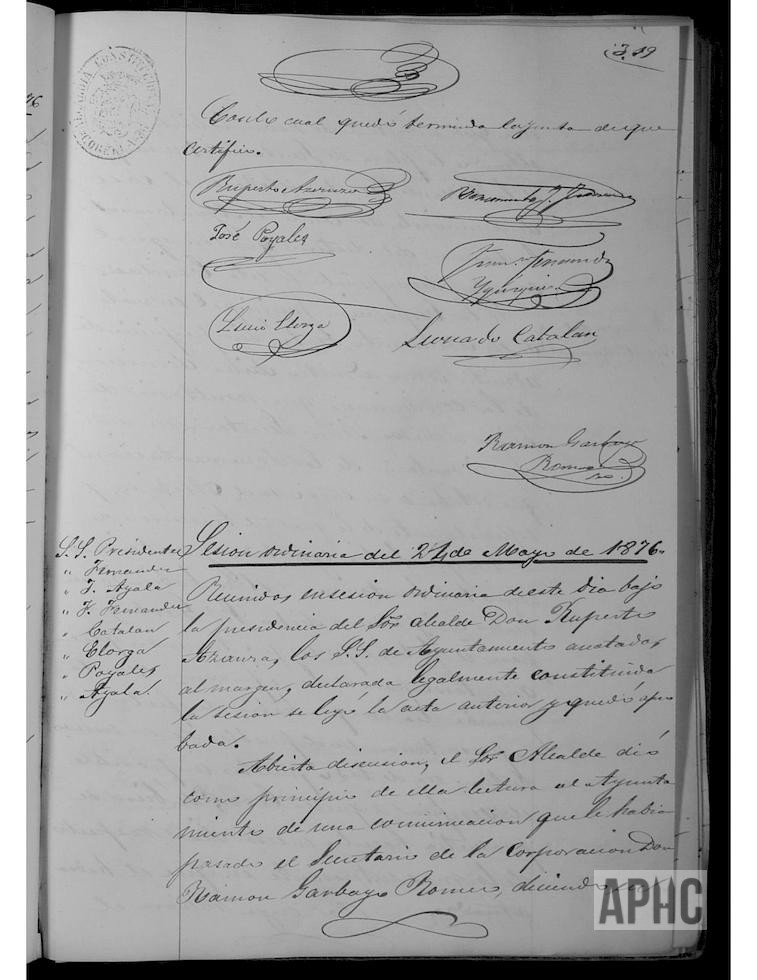 19
Con lo cual quedó terminada la junta de que
certifico.
Ruperto Azanza
José Poyales
Lucio Elorga
Leonardo Catalan
Ramon Garbayo
Romero
S. S. Presidente
" Fernandez
" T. Ayala
" F. Fernandez
" Catalan
" Elorga
" Poyales
" Ayala.
Sesion ordinaria del 24 de Mayo de 1876.
Reunidos en sesion ordinaria de este dia bajo
la presidencia del Sor. Alcalde Don Ruperto
Azanza, los S.S. de Ayuntamiento anotados
al margen, declarada legalmente constituida
la sesion se leyó la acta anterior y quedó apro
bada.
Abierta discusion, el Sor. Alcalde dió
como principio de ella lectura al Ayunta
miento de una comunicacion que le habia
pasado el Secretario de la Corporacion Don
Ramon Garbayo Romero, diciendo
APHC